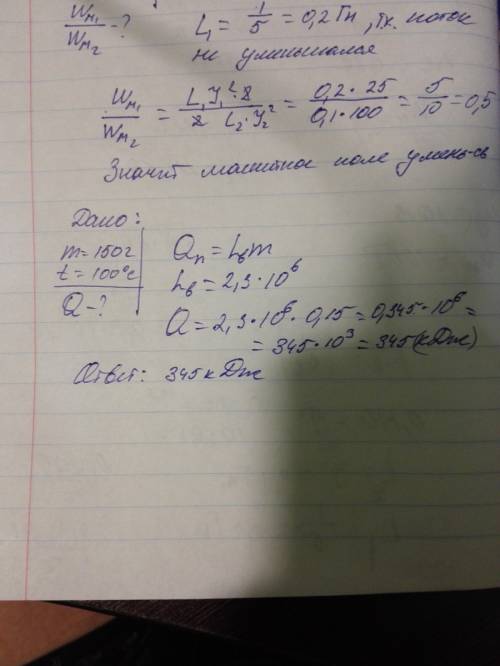 Wм₁/Wм₂ - ? L₁ = 1/5 = 0,2 Гн, т.к. поток
не уменьшался
Wм₁/Wм₂ = L₁J₁²·2 / 2 L₂·J₂² = 0,2·25 / 0,1·100 = 5/10 = 0,5
Значит магнитное поле умень-сь
Дано:
m = 150г Qп = Lвm
t = 100°c Lв = 2,3·10⁶
Q - ? Q = 2,3·10⁶·0,15 = 0,345·10⁶ =
= 345·10³ = 345(кДж)
Ответ: 345 кДж